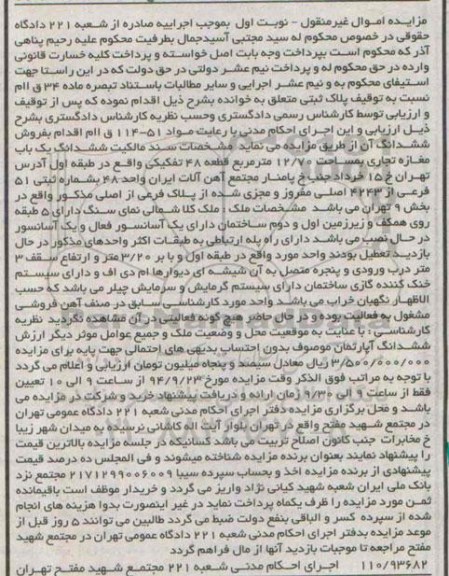 مزایده اموال غیرمنقول - نوبت اول بموجب اجراییه صادره از شعبه ۲۲۱ دادگاه
حقوقی در خصوص محکوم له سید مجتبی آسیدجمال بطرفیت محکوم علیه رحیم پناهی
آذر که محکوم است بپرداخت وجه بابت اصل خواسته و پرداخت کلیه خسارت قانونی
وارده در حق محکوم له و پرداخت نیم عشر دولتی در حق دولت که در این راستا جهت
استیفای محکوم به و نیم عشر اجرایی و سایر مطالبات باستناد تبصره ماده ۳۴ ق اام
نسبت به توقیف پلاک ثبتی متعلق به خوانده بشرح ذیل اقدام نموده که پس از توقیف
و ارزیابی توسط کارشناس رسمی دادگستری وحسب نظریه کارشناس دادگستری بشرح
ذیل ارزیابی و این اجرای احکام مدنی با رعایت مواد ۵۱-۱۱۴ ق اام اقدام بفروش
ششدانگ آن از طریق مزایده می نماید مشخصات سند مالکیت ششدانگ یک باب
مغازه تجاری بمساحت ۱۲/۷۰ مترمربع قطعه ۴۸ تفکیکی واقع در طبقه اول آدرس
تهران خ ۱۵ خرداد جنب خ پامنار مجتمع آهن آلات ایران واحد ۴۸ بشماره ثبتی ۵۱
فرعی از ۴۲۴۳ اصلی مفروز و مجزی شده از پلاک فرعی از اصلی مذکور واقع در
بخش ۹ تهران می باشد مشخصات ملک : ملک کلا شمالی نمای سنگ دارای ۵ طبقه
روی همکف و زیرزمین اول و دوم ساختمان دارای یک آسانسور فعال و یک آسانسور
در حال نصب می باشد دارای راه پله ارتباطی به طبقات اکثر واحدهای مذکور در حال
بازدید تعطیل بودند واحد مورد واقع در طبقه اول و با بر ۳/۲۰ متر و ارتفاع سقف ۳
متر درب ورودی و پنجره متصل به آن شیشه ای دیوارها ام دی اف و دارای سیستم
خنک کننده گازی ساختمان دارای سیستم گرمایش و سرمایش چیلر می باشد که حسب
الاظهار نگهبان خراب می باشد واحد مورد کارشناسی سابق در صنف آهن فروشی
مشغول به فعالیت بوده و در حال حاضر هیچ گونه فعالیتی در آن مشاهده نگردید نظریه
کارشناسی : با عنایت به موقعیت محل و وضعیت ملک و جمیع عوامل موثر دیگر ارزش
ششدانگ آپارتمان موصوف بدون احتساب بدیهی های احتمالی جهت پایه برای مزایده
۳/۵۰۰/۰۰۰/۰۰۰ ریال معادل سیصد و پنجاه میلیون تومان ارزیابی و اعلام می گردد
با توجه به مراتب فوق الذکر وقت مزایده مورخ ۹۴/۹/۲۳ از ساعت ۹ الی ۱۰ تعیین
فقط از ساعت ۹ الی ۹/۳۰ زمان ارائه و دریافت پیشنهاد خرید و شرکت در مزایده می
باشد و محل برگزاری مزایده دفتر اجرای احکام مدنی شعبه ۲۲۱ دادگاه عمومی تهران
در مجتمع شهید مفتح واقع در تهران بلوار آیت اله کاشانی نرسیده به میدان شهر زیبا
خ مخابرات جنب کانون اصلاح تربیت می باشد کسانیکه در جلسه مزایده بالاترین قیمت
را پیشنهاد نمایند بعنوان برنده مزایده شناخته میشوند و فی المجلس ده درصد قیمت
پیشنهادی از برنده مزایده اخذ و بحساب سپرده سیبا ۲۱۷۱۲۹۹۰۰۶۰۰۹ مجتمع نزد
بانک ملی ایران شعبه شهید کیانی نژاد واریز می گردد و خریدار موظف است باقیمانده
ثمن مورد مزایده را ظرف یکماه پرداخت نماید در غیر اینصورت بدوا هزینه های انجام
شده از سپرده کسر و الباقی بنفع دولت ضبط می گردد طالبین می توانند ۵ روز قبل از
موعد مزایده بدفتر اجرای احکام مدنی شعبه ۲۲۱ دادگاه عمومی تهران در مجتمع شهید
مفتح مراجعه تا موجبات بازدید آنها از مال فراهم گردد
۱۱۰/۹۳۶۸۲ اجرای احکام مدنی شعبه ۲۲۱ مجتمع شهید مفتح تهران